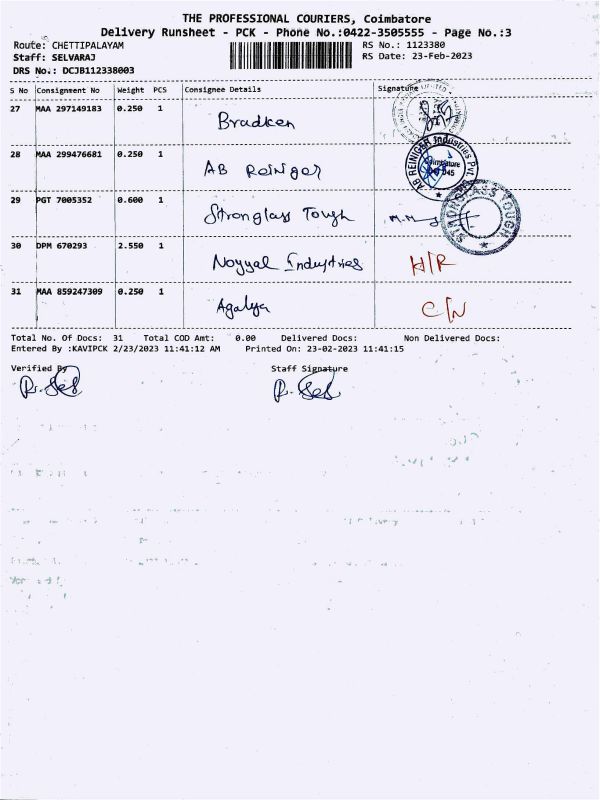 THE PROFESSIONAL COURIERS, Coimbatore
Delivery Runsheet - PCK - Phone No.:0422-3505555 - Page No.:3
Route: CHETTIPALAYAM RS No.: 1123380
Staff: SELVARAJ RS Date: 23-Feb-2023
DRS No.: DCJB112338003
S No Consignment No Weight PCS Consignee Details Signature
27 MAA 297149183 0.250 1 Bradken
28 MAA 299476681 0.250 1 AB Reiniger AB REINIGER Industries Pvt Coimbatore
29 PGT 7005352 0.600 1 Stronglass Tough STRONGLASS TOUGH
30 DPM 670293 2.550 1 Noyyal Industries H/R
31 MAA 859247309 0.250 1 Agalya C/N
Total No. Of Docs: 31 Total COD Amt: 0.00 Delivered Docs: Non Delivered Docs:
Entered By :KAVIPCK 2/23/2023 11:41:12 AM Printed On: 23-02-2023 11:41:15
Verified By Staff Signature